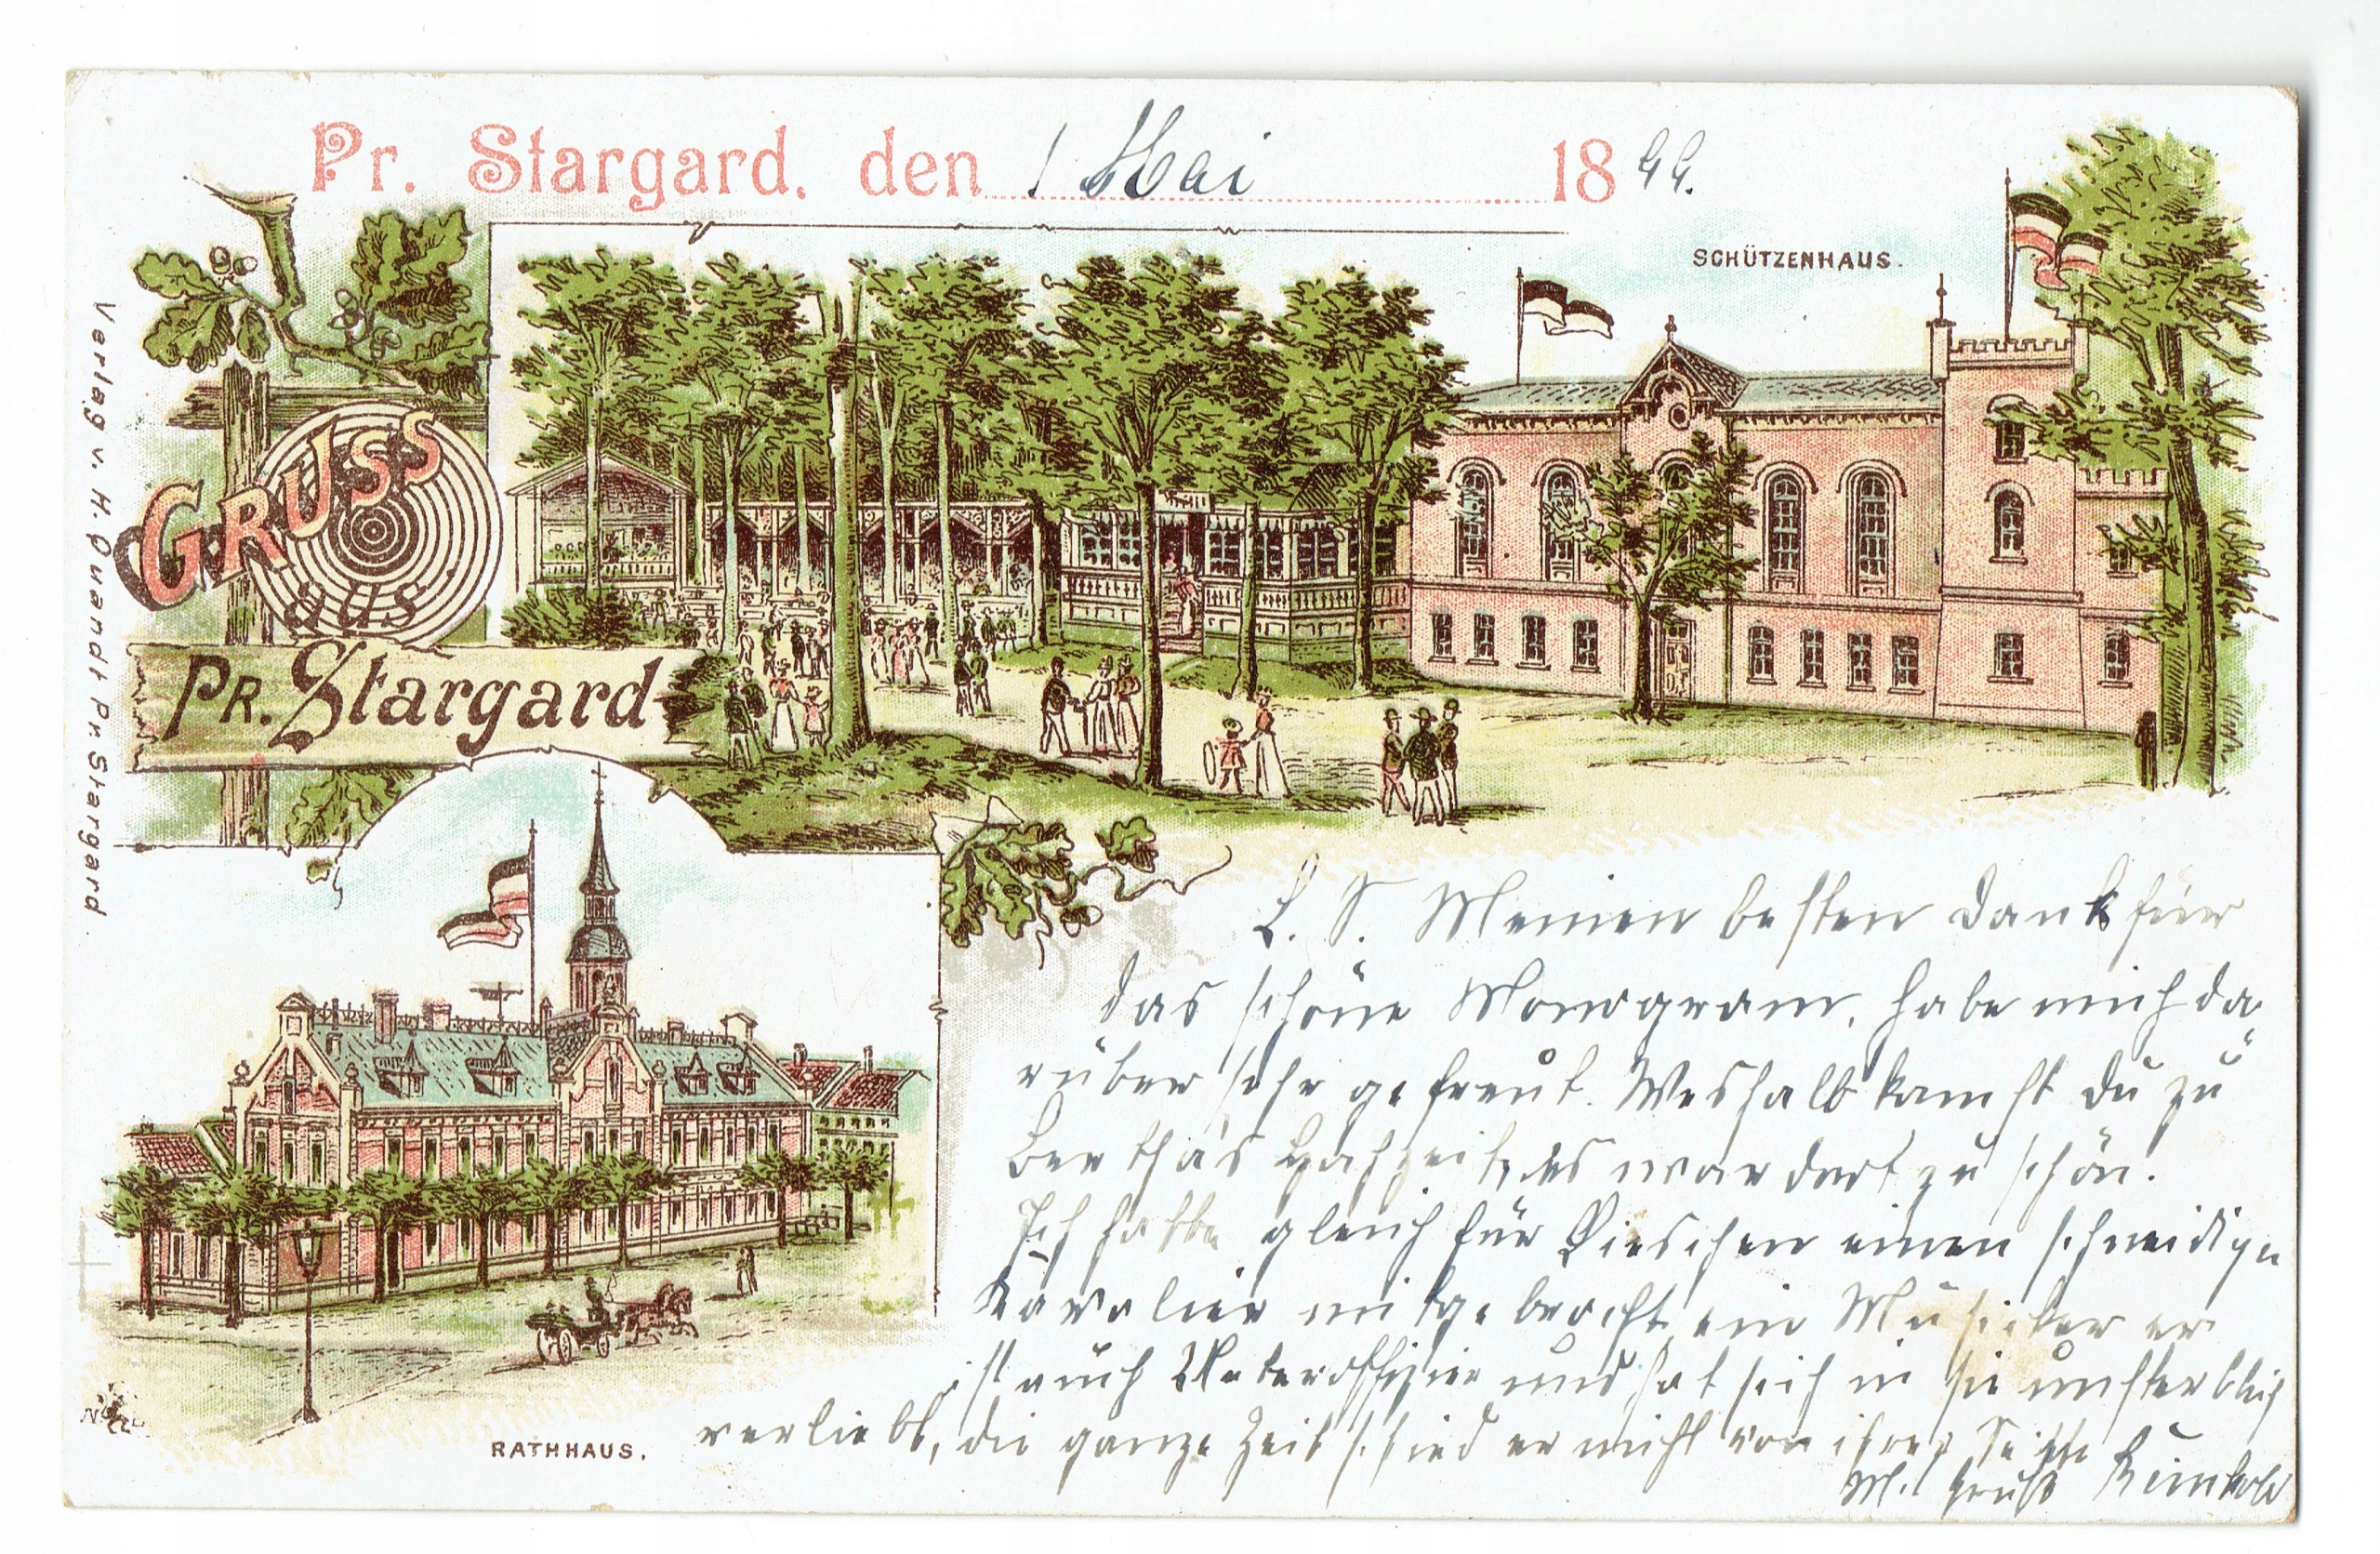 Pr. Stargard, den 1 Mai 1899.
SCHÜTZENHAUS.
GRUSS
aus
PR. Stargard
Verlag v. H. Quandt Pr. Stargard
RATHHAUS.
L. S. Meinen besten Dank für
das schöne Monogram, habe mich da-
rüber sehr gefreut. Weshalb kamst du zu
Bertha's Hochzeit, es war dort zu schön.
Ich hatte gleich für Lieschen einen schneidigen
Kavalier mitgebracht, ein Musiker er
ist auch Unteroffizier und hat sich in sie unsterblich
verliebt, die ganze Zeit schied er nicht von ihrer Seite
M. Gruß Reinhold